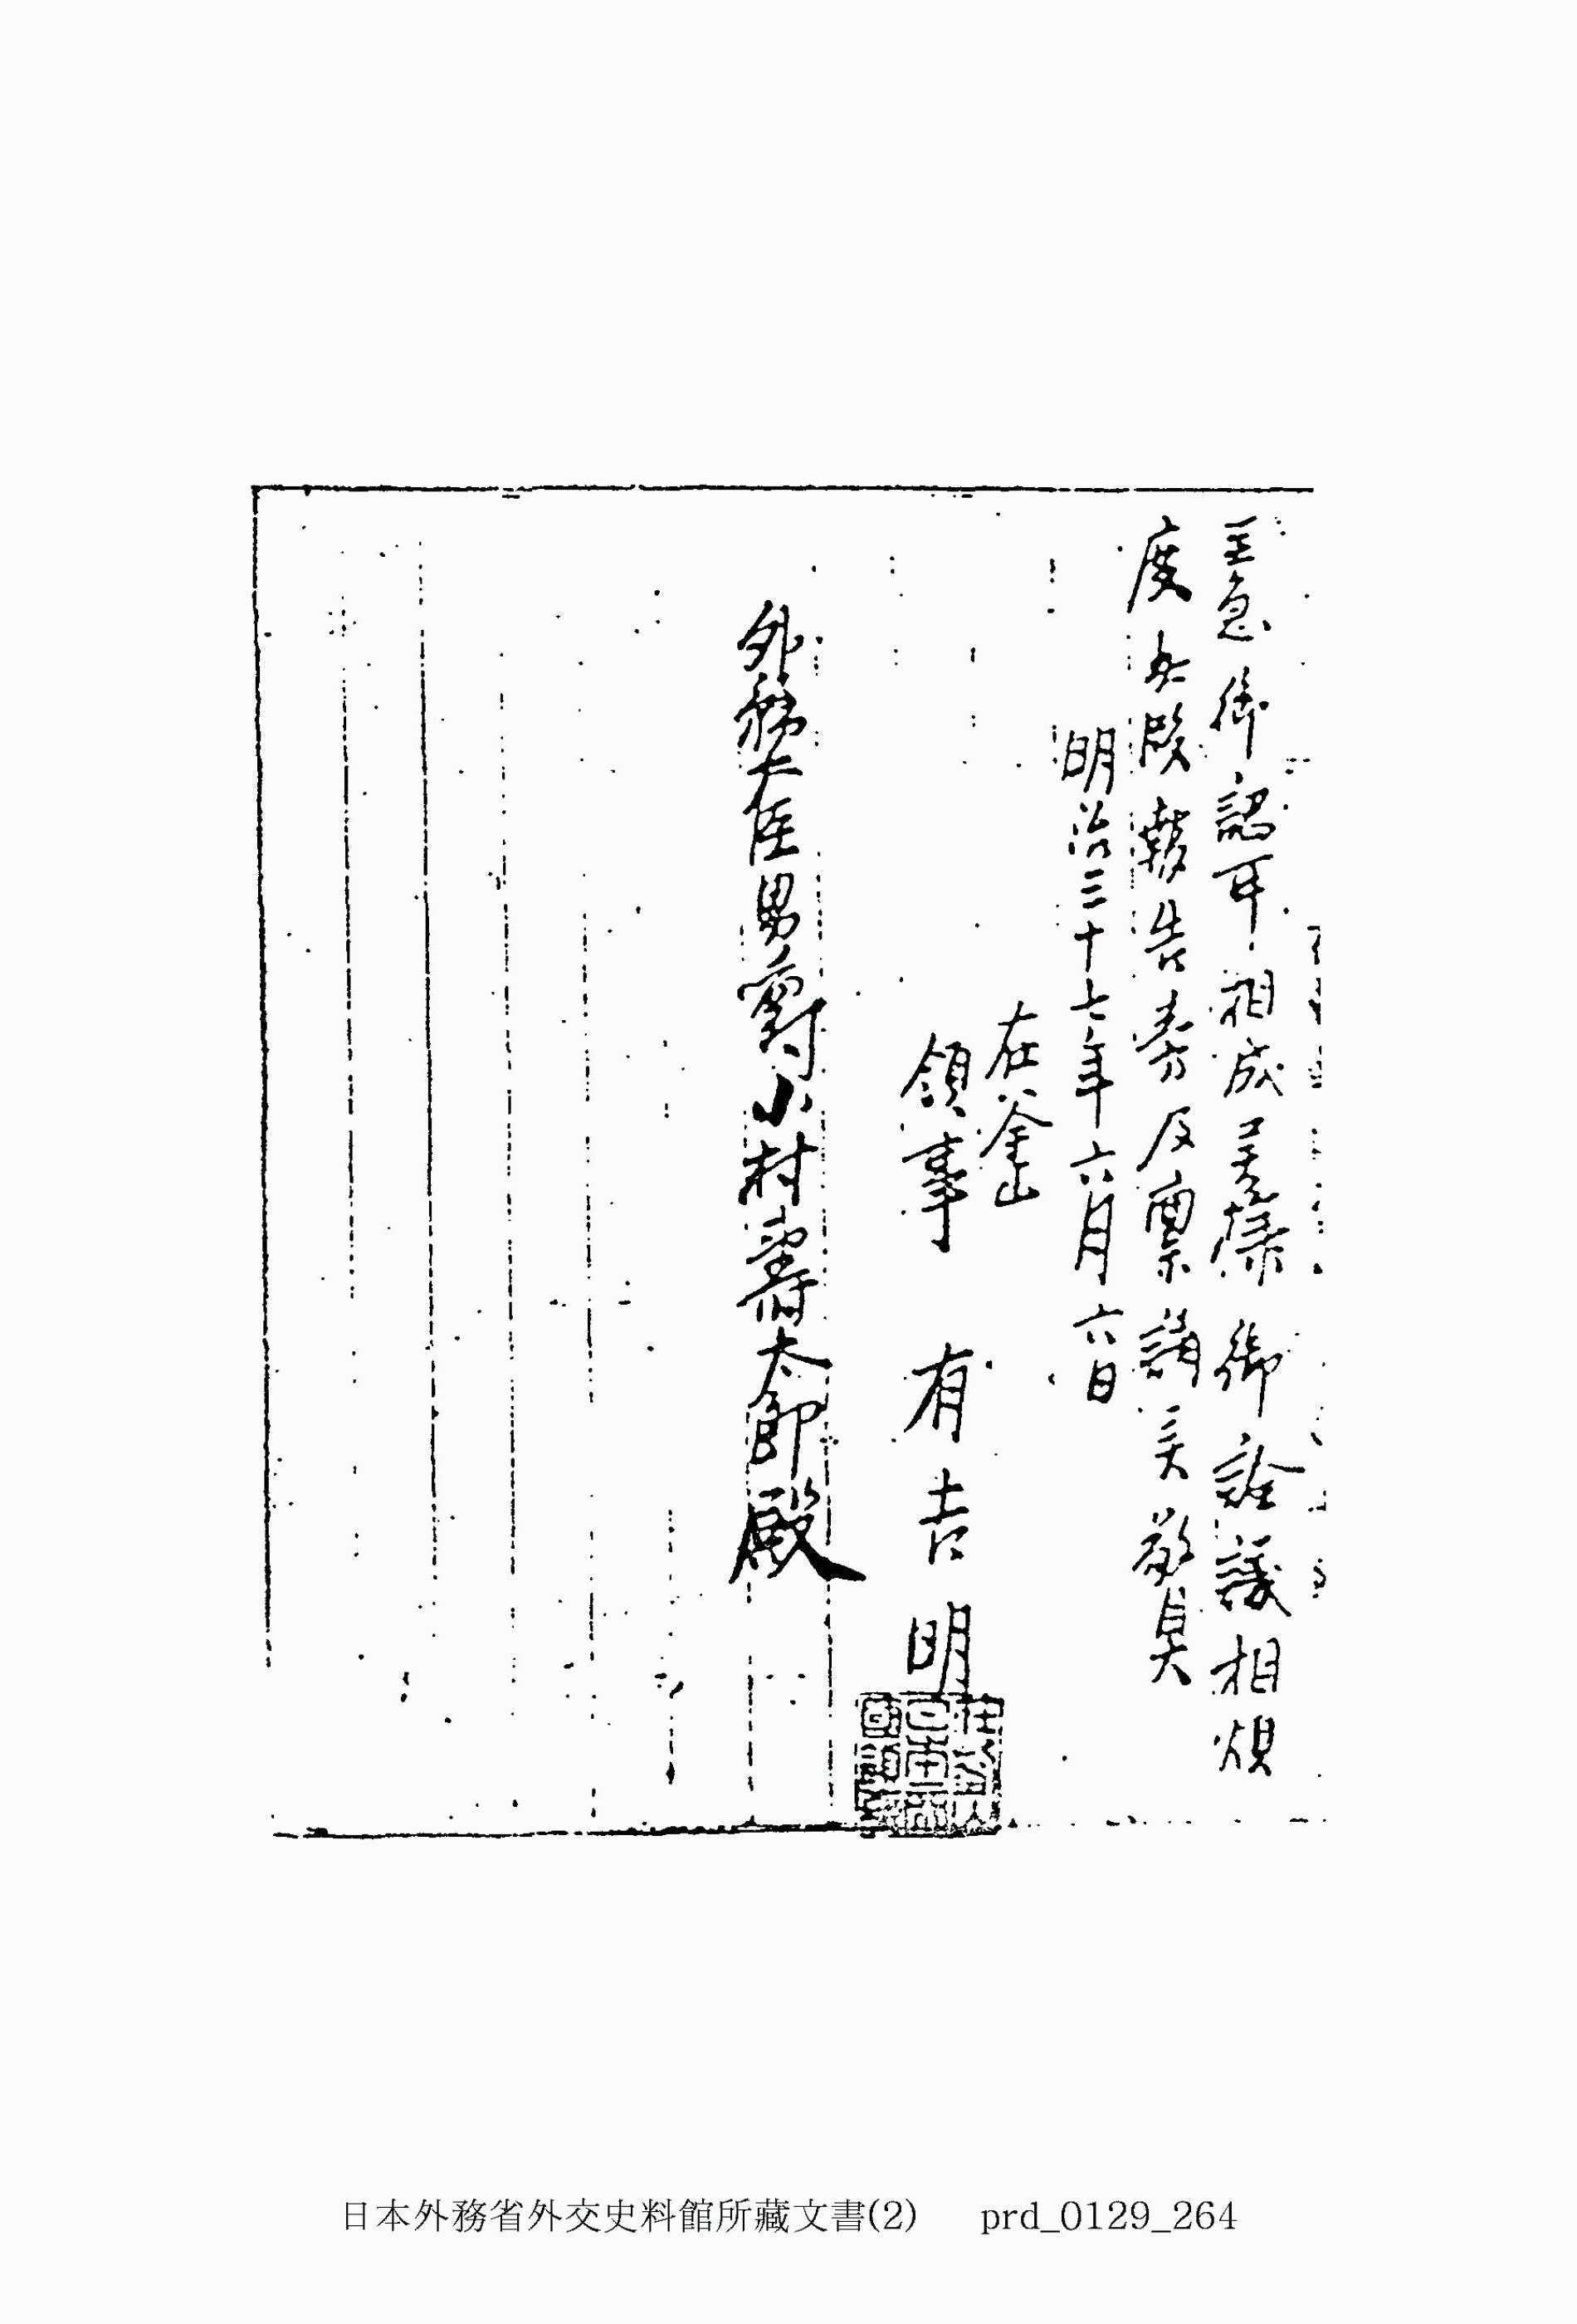 至急御認可相成候様御詮議相煩
度此段報告旁及禀請候敬具
明治三十七年六月六日
在釜山
領事 有吉明
外務大臣男爵小村壽太郎殿
在釜山
日本帝
國領事
日本外務省外交史料館所藏文書(2) prd_0129_264